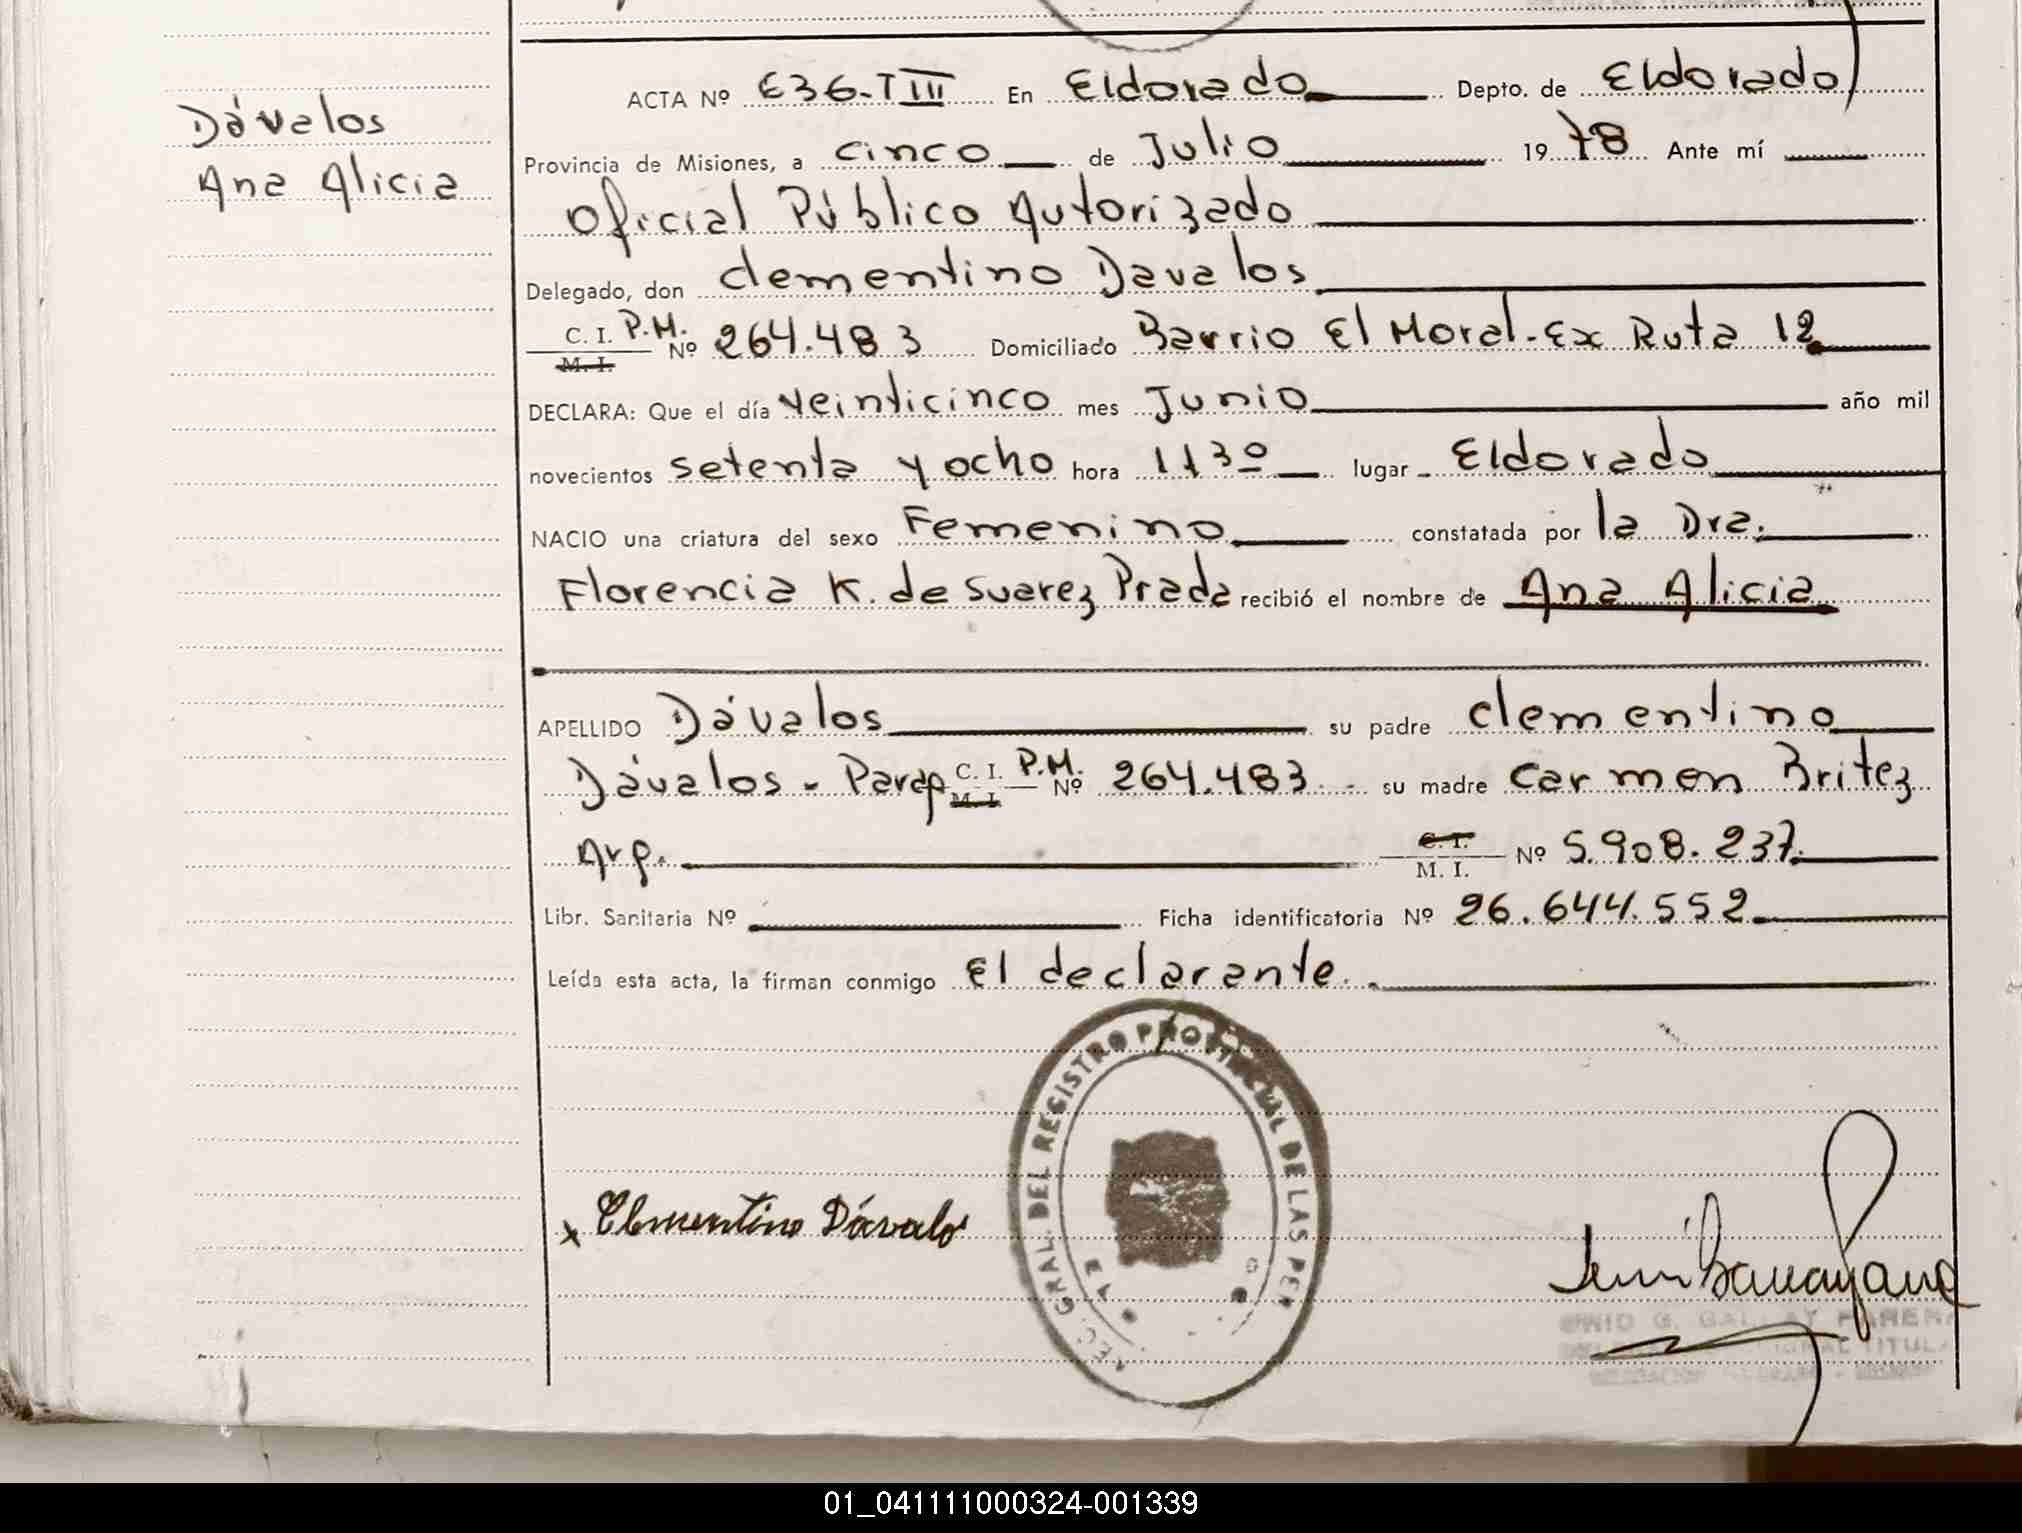 Dávalos
Ana Alicia
ACTA Nº 636-TIII En Eldorado Depto. de Eldorado
Provincia de Misiones, a cinco de Julio 1978 Ante mí
Oficial Público Autorizado
Delegado, don Clementino Davalos
C. I. P.M. Nº 264.483 Domiciliado Barrio El Moral-Ex Ruta 12
M. I.
DECLARA: Que el día veinticinco mes Junio año mil
novecientos setenta y ocho hora 1130 lugar Eldorado
NACIO una criatura del sexo Femenino constatada por la Dra.
Florencia K. de Suarez Prada recibió el nombre de Ana Alicia
APELLIDO Dávalos su padre Clementino
Dávalos - Parag C. I. P.M. Nº 264.483 su madre Carmen Britez
M. I.
Arg. C. I. Nº 5.908.237
M. I.
Libr. Sanitaria Nº Ficha identificatoria Nº 26.644.552
Leída esta acta, la firman conmigo El declarante.
GRAL. DEL REGISTRO PROVINCIAL DE LAS PER
x Clementino Dávalos
01_041111000324-001339